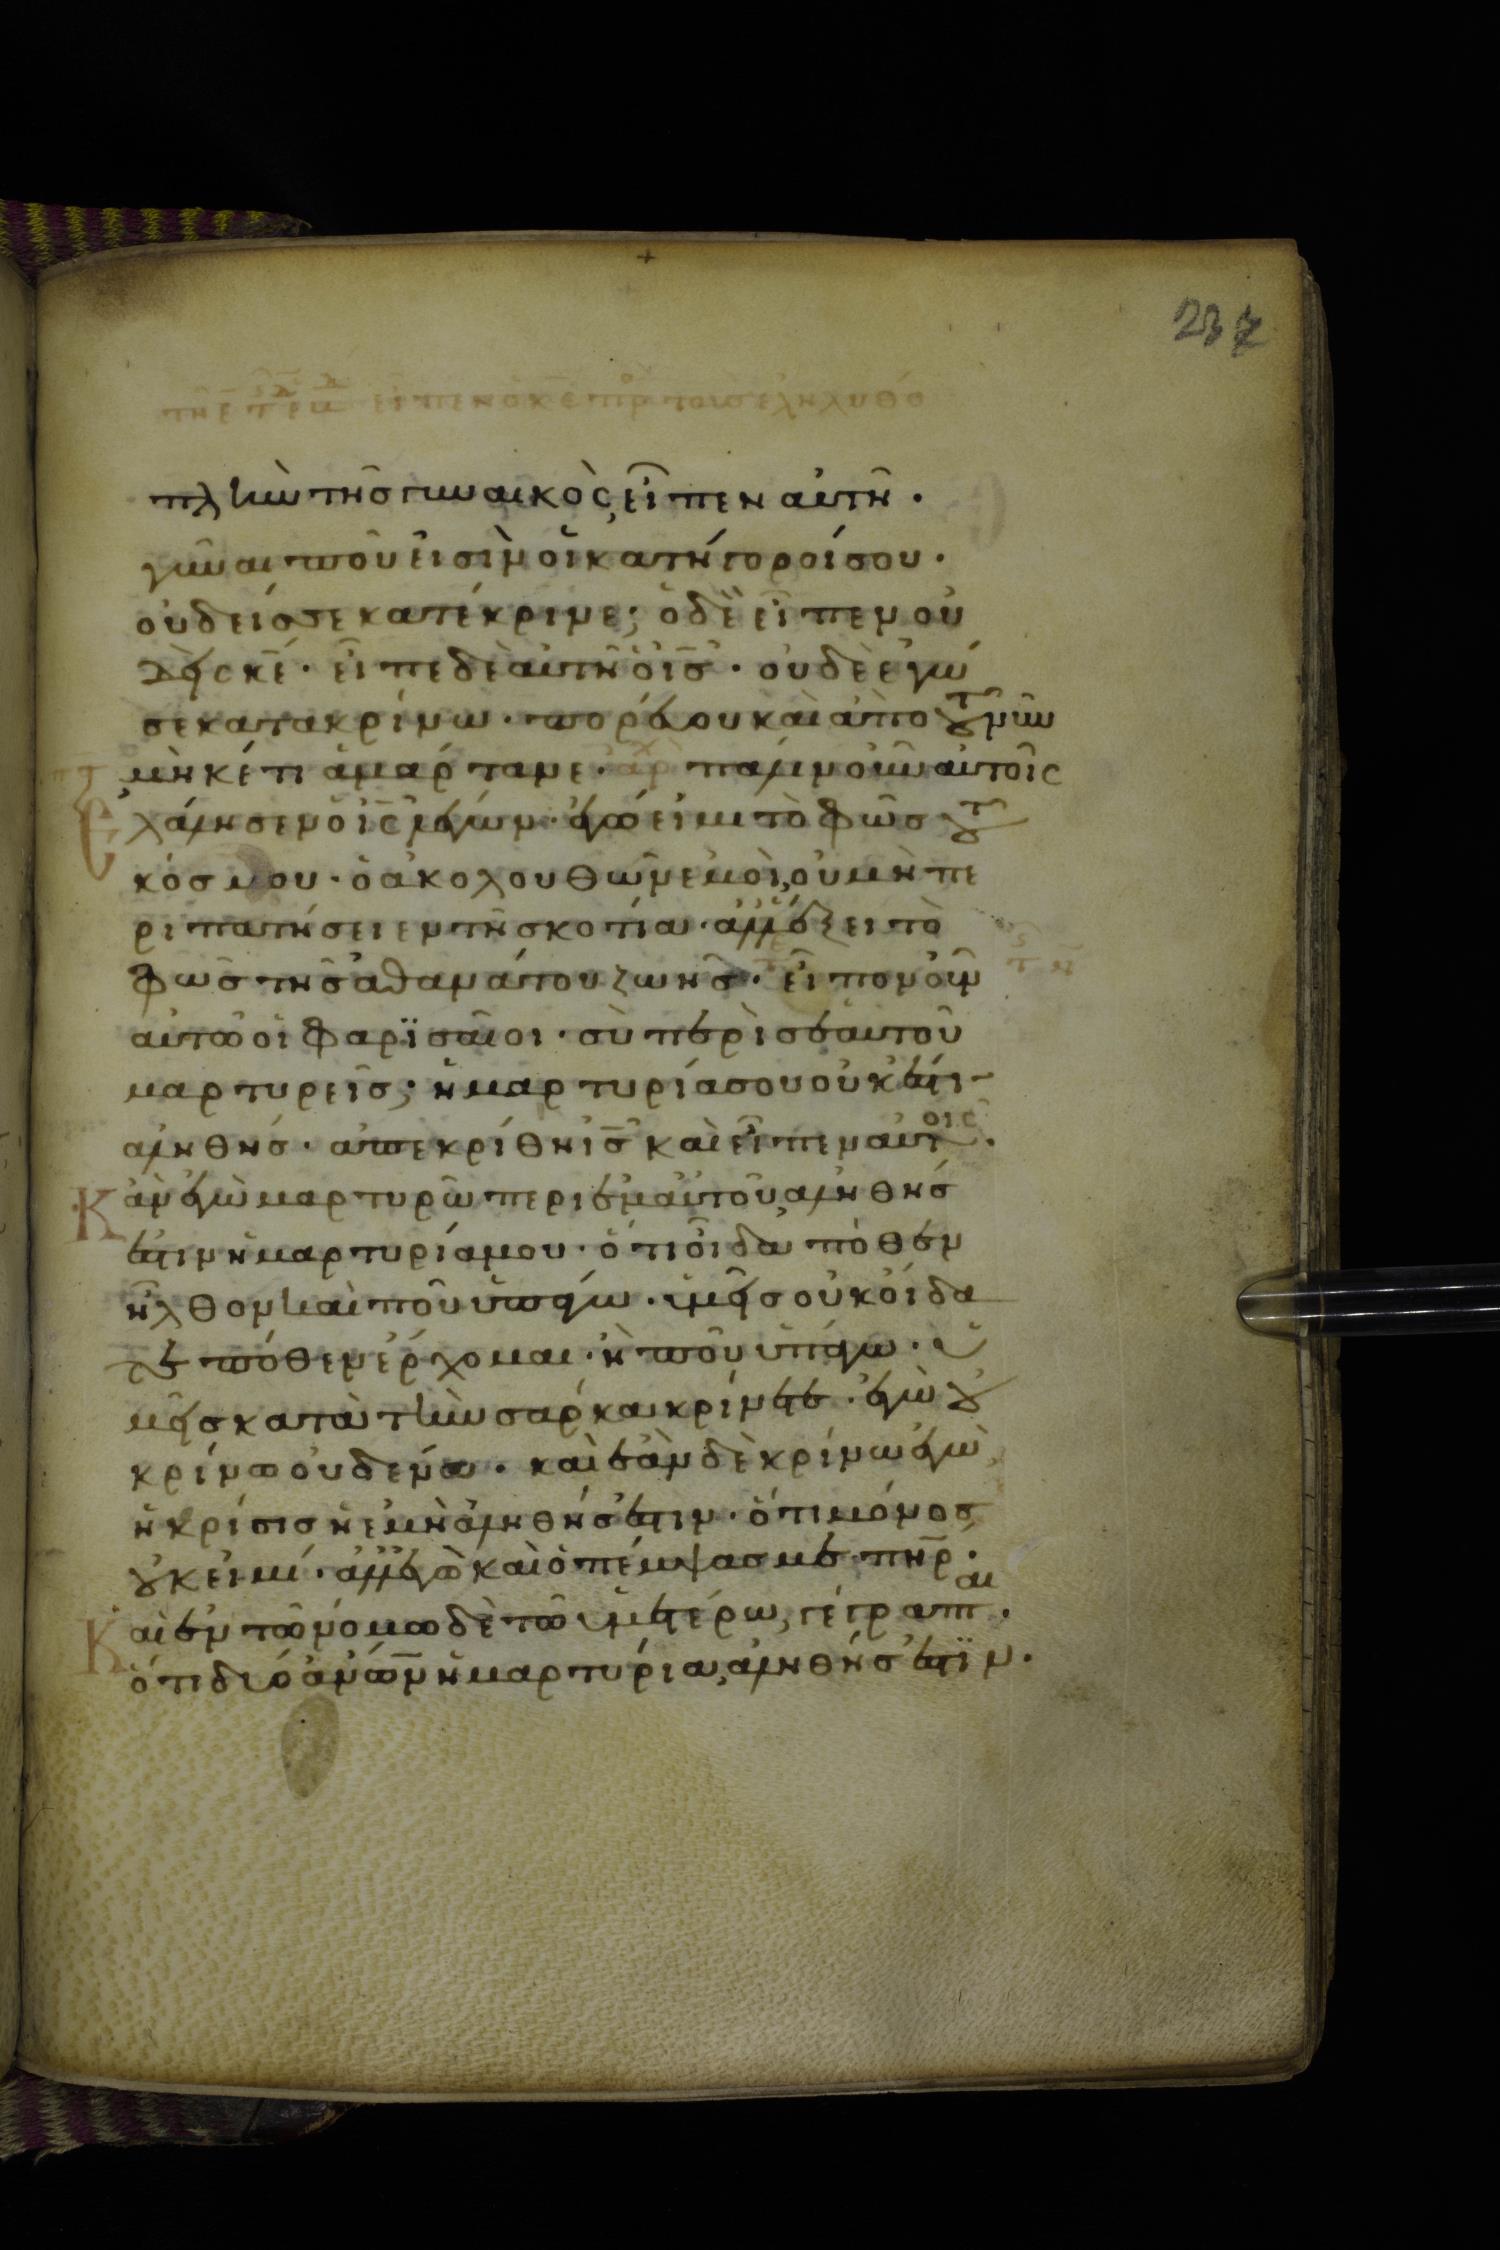 237
πλὴν τῆς γυναικὸς, εἶπεν αὐτῆ·
γύναι ποῦ εἰσὶν οἵ κατήγοροί σου·
οὐδείς σε κατέκρινε; ὁ δὲ εἶπεν οὐ
δεὶς κε̄· εἶπε δὲ αὐτῆ ὁ ις̄· οὐδὲ ἐγώ
σε κατακρίνω· πορεύου καὶ ἀπὸ τοῦ νῦν
μὴκέτι ἁμάρτανε· ἀρχ πάλιν οὖν αὐτοῖς
ἐλάλησεν ὁ ις̄ λέγων· ἐγώ εἰμι τὸ φῶς τοῦ
κόσμου· ὁ ἀκολουθῶν ἐμοὶ, οὐ μὴ πε
ριπατήσει ἐν τῆ σκοτία· ἀλλ' ἕξει τὸ
φῶς τῆς ἀθανάτου ζωῆς· εἶπον οὖν
αὐτῶ οἱ φαρϊσαῖοι· σὺ περὶ σεαυτοῦ
μαρτυρεῖς; ἡ μαρτυρία σου οὐκ ἔστι
αληθής· ἀπεκρίθη ις̄ καὶ εἶπεν αὐτοῖς·
Κἀν ἐγὼ μαρτυρῶ περι ἐμαὐτοῦ, αληθής
ἐστιν ἡ μαρτυρία μου· ὅτι οἶδα πόθεν
ἦλθον καὶ ποῦ ὑπάγω· ὑμεῖς οὐκ οἴδα
τε πόθεν ἐρχομαι· ἢ ποῦ ὑπάγω· ὑ
μεῖς κατὰ τὴν σαρκα κρίνετε· ἐγὼ οὐ
κρίνω οὐδένα· καὶ ἐὰν δὲ κρίνω ἐγὼ
ἡ κρίσις ἡ ἐμὴ ἀληθής ἐστιν· ὅτι μόνος
οὐκ εἰμί· ἀλλ' ἐγὼ καὶ ὁ πέμψας με πηρ̄·
Καὶ ἐν τῶ νόμω δὲ τῶ ὑμετέρω, γέγραπται·
ὁτι δύο ἀνῶν̄ ἡ μαρτυρία, ἀληθής ἐστϊν·